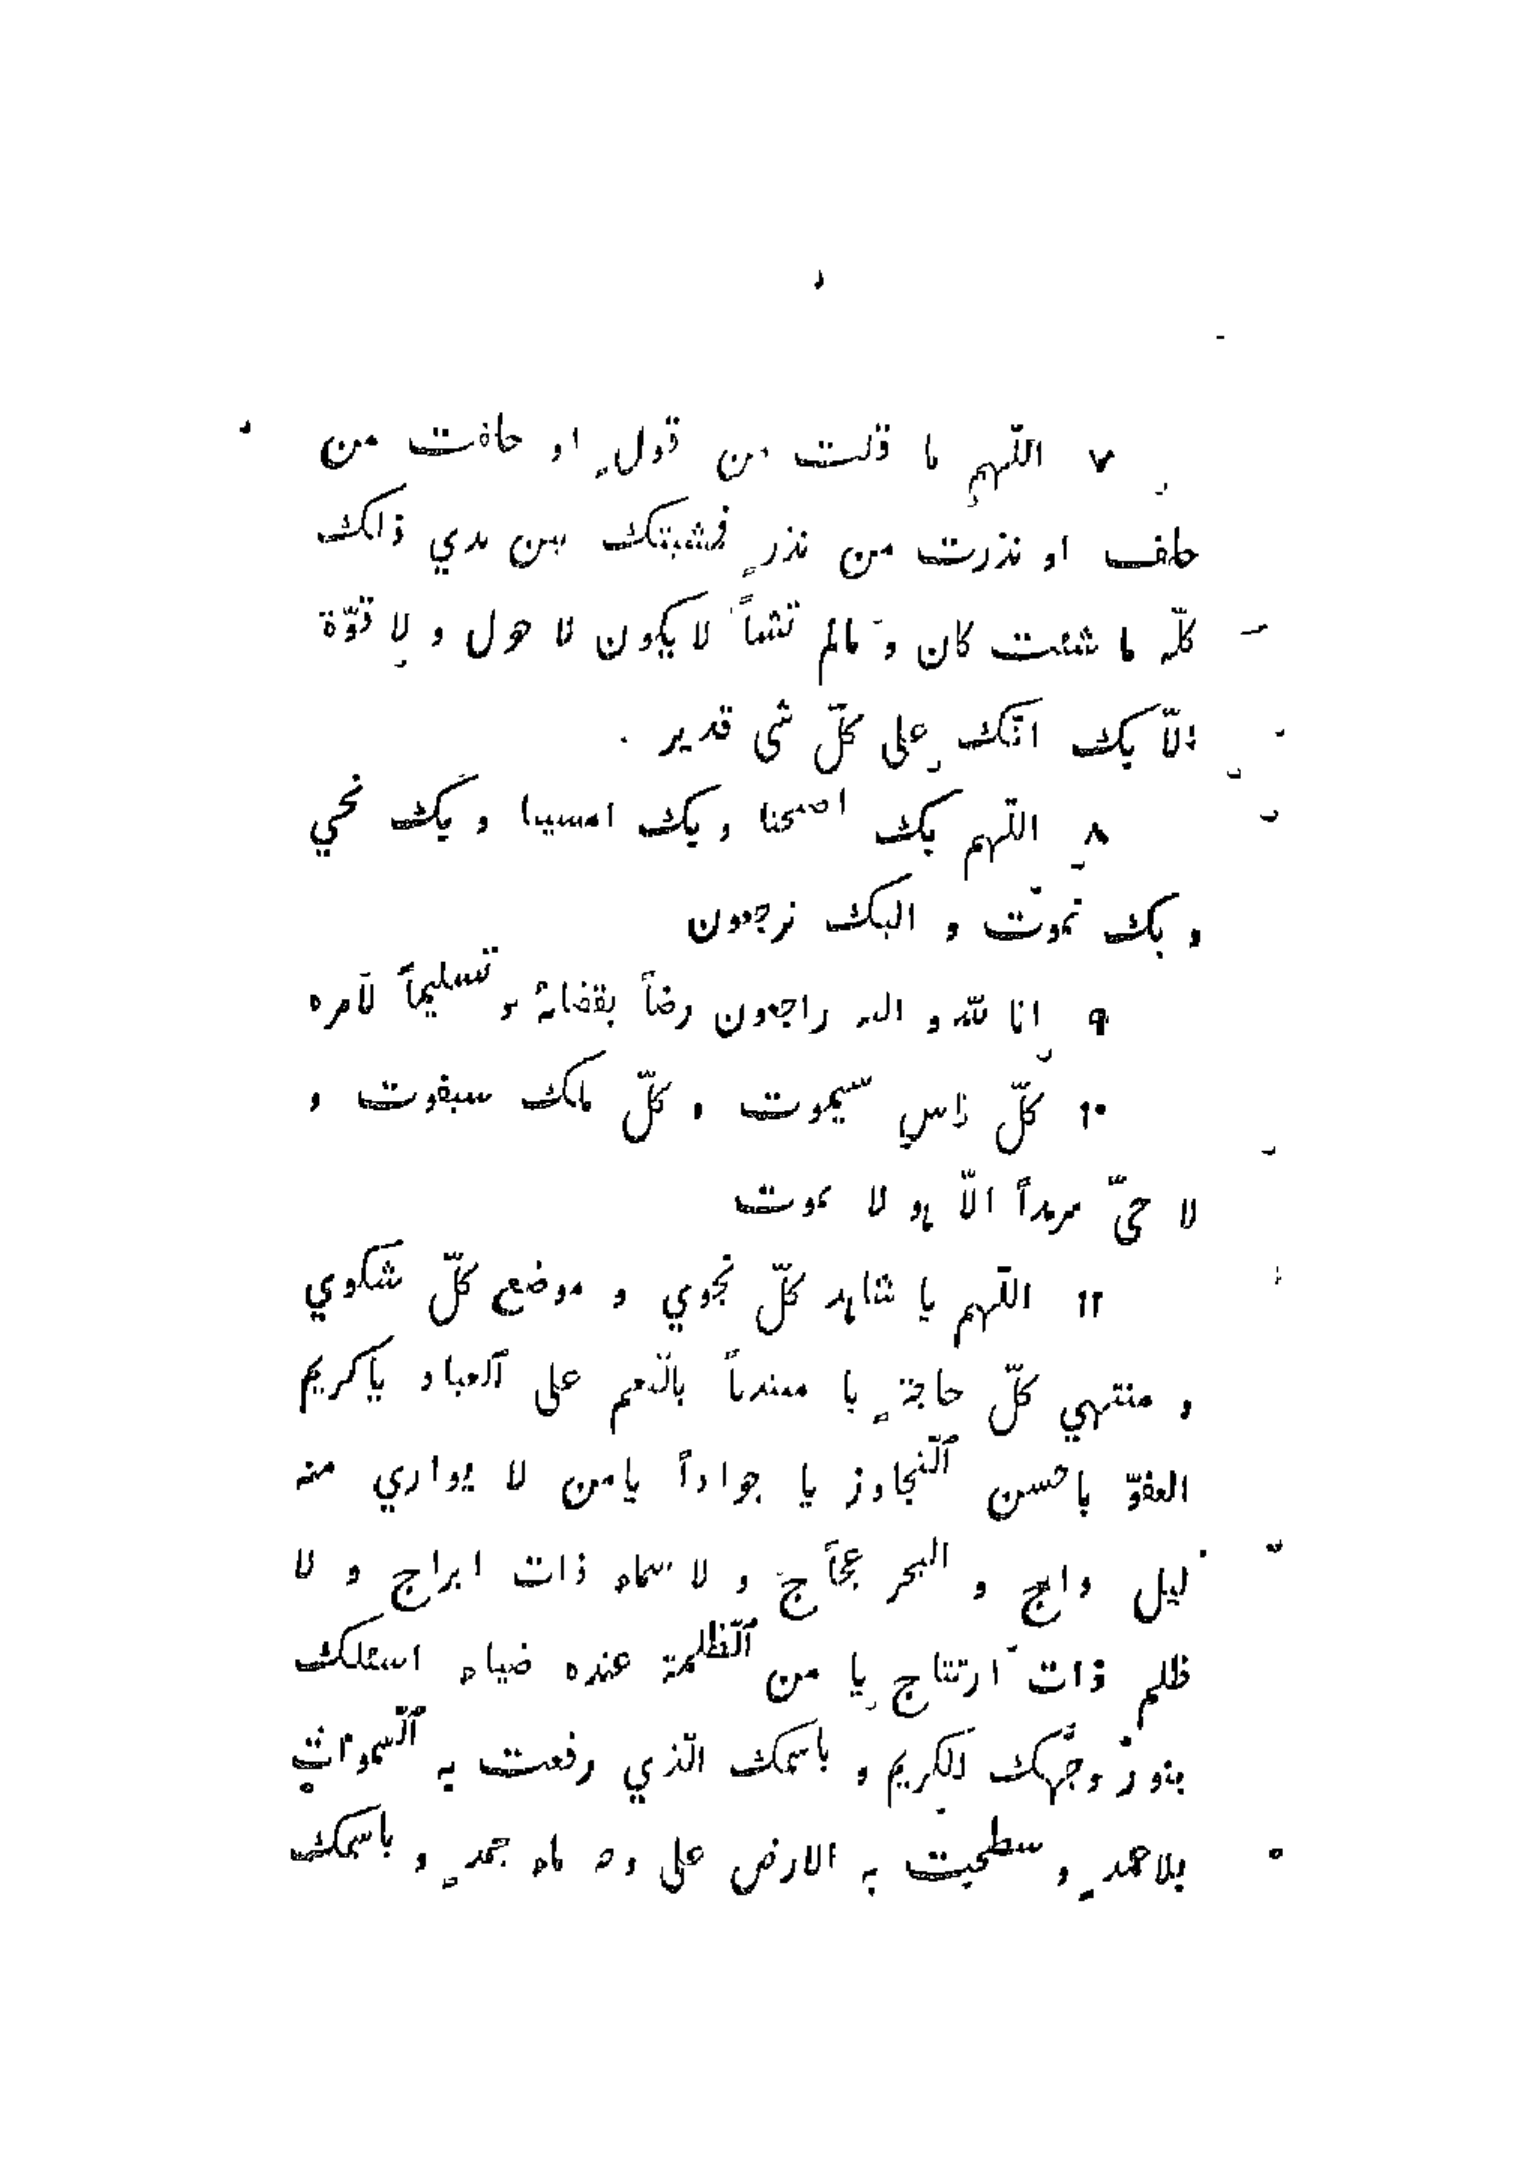 ٧ اللّهم ما قلت من قولٍ او حلفت من
حلف او نذرت من نذرٍ فمشيتك بين يدي ذالك
كلّه ما شئت كان و مالم تشأ لا يكون لا حول و لا قوّة
الّا بك انّك على كلّ شى قدير .
٨ اللّهم بك اصبحنا و بك امسينا و بك نحي
و بك نموت و اليك نرجعون
٩ انا للّه و اليه راجعون رضاً بقضائه و تسليماً لامره
١٠ كلّ ناس سيموت و كلّ مالك سيفوت و
لا حىّ سرمداً الّا هو لا يموت
١١ اللّهم يا شاهد كلّ نجوي و موضع كلّ شكوي
و منتهي كلّ حاجةٍ يا مبتدئاً بالنّعم على العباد ياكريم
العفوّ ياحسن التّجاوز يا جواداً يامن لا يواري منه
ليل داج و البحر عجّاج و لا سماء ذات ابراج و لا
ظلم ذات ارتتاج يا من الظّلمة عنده ضياء اسئلك
بنور وجهك الكريم و باسمك الّذي رفعت به السّموات
بلاعمدٍ و سطحيت به الارض على ماء جمدٍ و باسمك